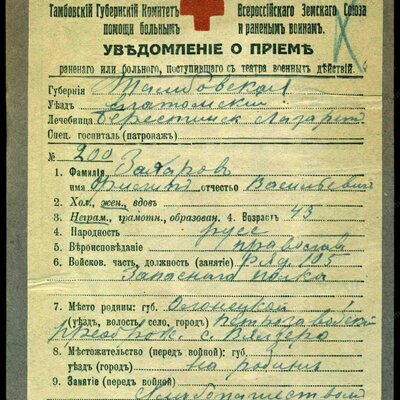 Тамбовскій Губернскій Комитет Всероссійскаго Земскаго Союза
помощи больным и раненым воинам.
УВѢДОМЛЕНІЕ О ПРІЕМѢ
раненаго или больного, поступившаго с театра военных дѣйствій.
Губернія Тамбовская
Уѣзд Елатомскій
Лечебница лазарет
Спец. госпиталь (патронаж)
№ 200
1. Фамилія Захаров
имя Филипп отчество Васильевич
2. Хол., жен., вдов
3. Неграм., грамотн., образован. 4. Возраст 43
4. Народность русс
5. Вѣроисповѣданіе православ
6. Войсков. часть, должность (занятіе) Ряд. 105
Запаснаго полка
7. Мѣсто родины: губ. Олонецкой
(уѣзд, волость / село, город) Петрозаводскій
с. Пялозеро
8. Мѣстожительство (перед войной): губ.
уѣзд (город) на родинѣ
9. Занятіе (перед войной)
Хлѣбопашеством